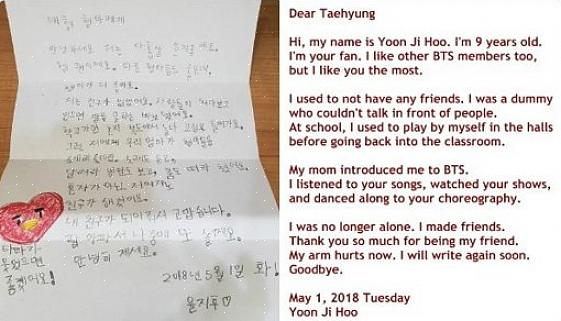 안녕하세요. 저는 아홉살 윤지후 에요.
형 팬이에요. 다른 형아들도 좋지만
형아가 더 좋아요.
저는 친구가 없었어요. 사람들이 쳐다보고
있으면 말을 못하는 바보 였어요.
학교가면 혼자 복도에서 놀다 교실로 들어가요.
그런 저에게 우리 엄마가 형아들을
노래도 듣고,
달려라 방탄도 보고, 춤도 따라
혼자가 아닌
친구가
내 친구가 되어줘서 고맙습니다.
팔 아파서 나중에 또 쓸게요.
안녕히 계세요.
2018년 5월 1일 화!
윤지후♡
타타가
웃었으면
좋겠어요!
Dear Taehyung
Hi, my name is Yoon Ji Hoo. I'm 9 years old.
I'm your fan. I like other BTS members too,
but I like you the most.
I used to not have any friends. I was a dummy
who couldn't talk in front of people.
At school, I used to play by myself in the halls
before going back into the classroom.
My mom introduced me to BTS.
I listened to your songs, watched your shows,
and danced along to your choreography.
I was no longer alone. I made friends.
Thank you so much for being my friend.
My arm hurts now. I will write again soon.
Goodbye.
May 1, 2018 Tuesday
Yoon Ji Hoo